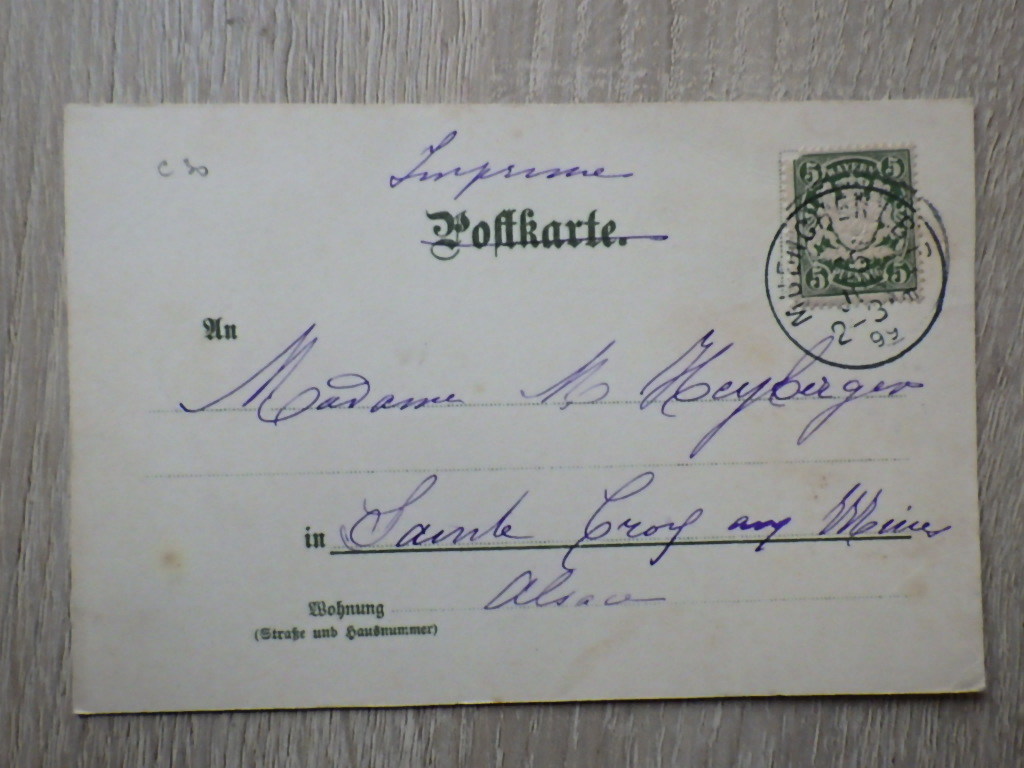 C 30
Imprime
Postkarte.
5 5
5 5
MUENCHEN
2-3
99
An
Madame M Heyberger
in Sainte Croix aux Mines
Alsace
Wohnung
(Straße und Hausnummer)